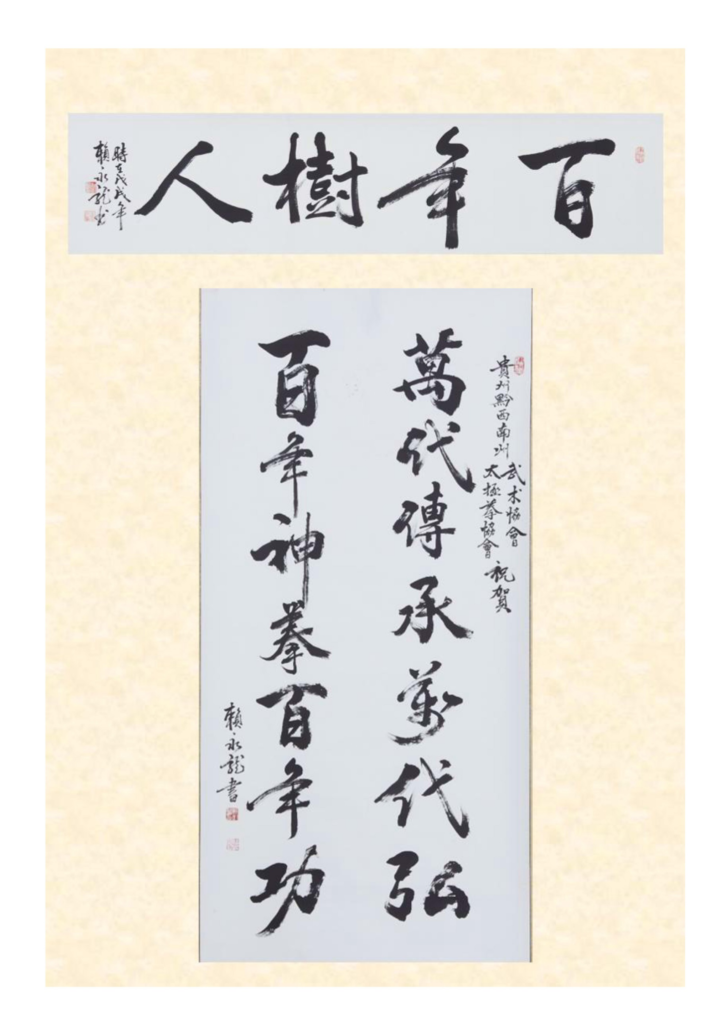 百年樹人
時在戊戌年
賴永龍書
貴州黔西南州
武术協會
太極拳協會
祝贺
萬代傳承萬代弘
百年神拳百年功
賴永龍書